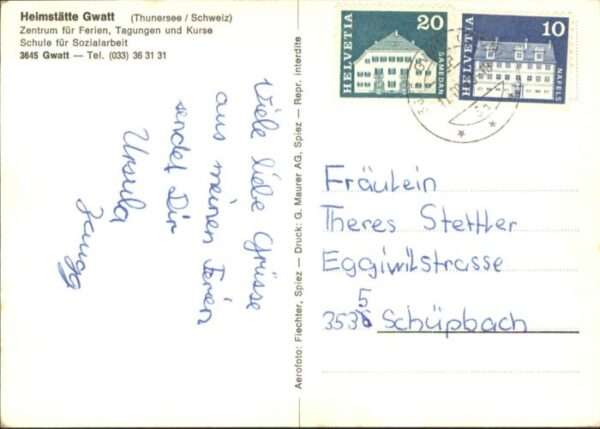 Heimstätte Gwatt (Thunersee / Schweiz)
Zentrum für Ferien, Tagungen und Kurse
Schule für Sozialarbeit
3645 Gwatt — Tel. (033) 36 31 31
Viele liebe Grüsse
aus meinen Ferien
sendet Dir
Ursula
Aerofoto: Flechter, Spiez — Druck: G. Maurer AG, Spiez — Repr. interdite
HELVETIA
20
SAMEDAN
HELVETIA
10
NÄFELS
Fräulein
Theres Stettler
Eggiwilstrasse
3535 Schüpbach